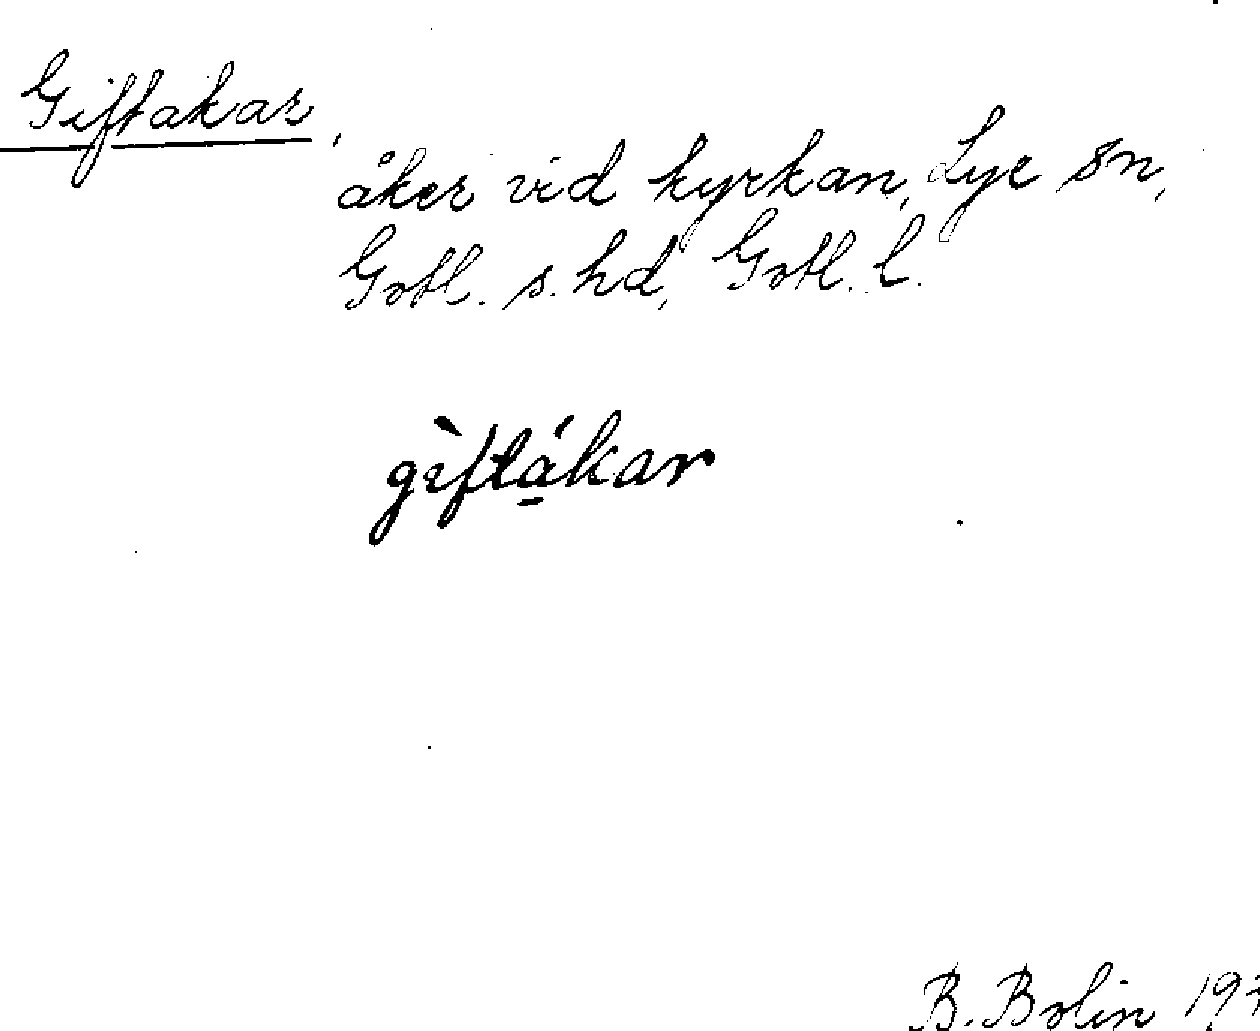 Giftakar,
åker vid kyrkan, Lye sn,
Gotl. s. hd, Gotl. l.
gìftá̱kar
B. Bolin